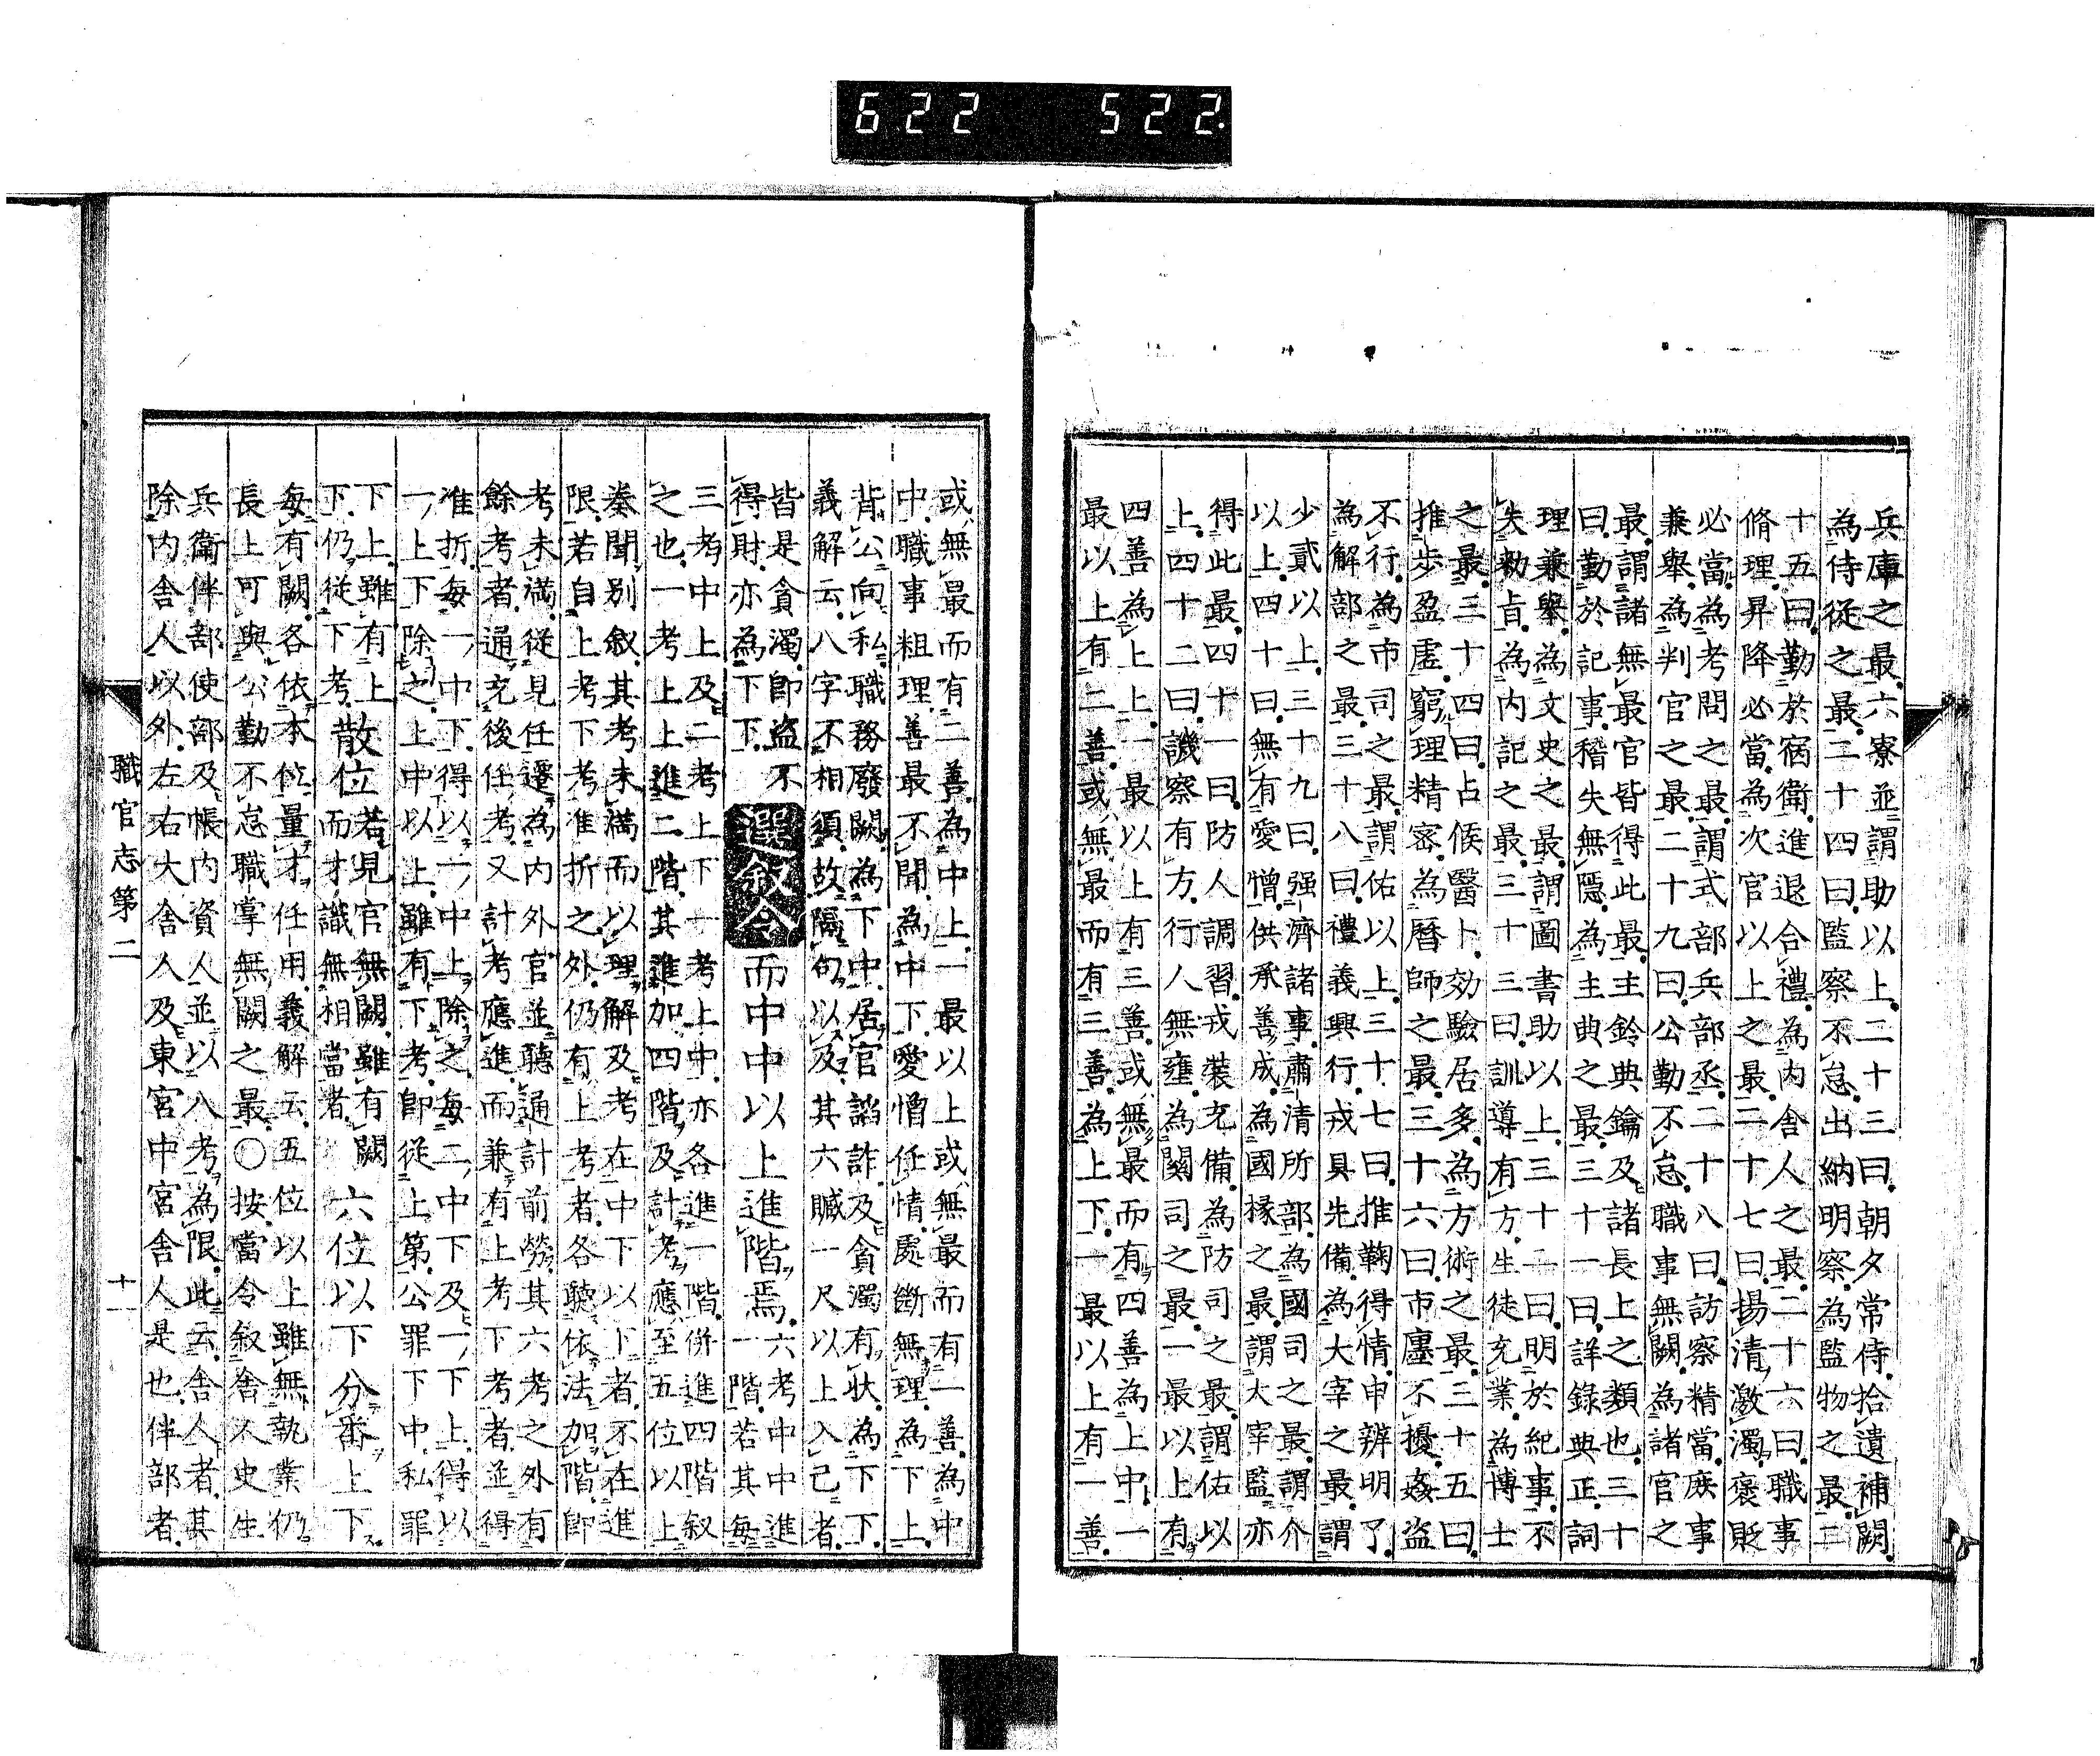 622 522
兵庫之最六寮並謂助以上二十三曰朝夕常侍拾遺補闕
為侍從之最二十四曰監察不怠出納明察為監物之最二
十五曰勤於宿衛進退合禮為內舍人之最二十六曰職事
脩理昇降必當為次官以上之最二十七曰揚清激濁褒貶
必當為考問之最謂式部兵部丞二十八曰訪察精當庶事
兼舉為判官之最二十九曰公勤不怠職事無闕為諸官之
最謂諸無最官皆得此最主鈴典鑰及諸長上之類也三十
曰勤於記事稽失無隱為主典之最三十一曰詳錄典正詞
理兼舉為文史之最謂圖書助以上三十二曰明於紀事不
失勅旨為內記之最三十三曰訓導有方生徒充業為博士
之最三十四曰占候醫卜効驗居多為方術之最三十五曰
推步盈虛窮理精密為曆師之最三十六曰市廛不擾姦盜
不行為市司之最謂佑以上三十七曰推鞫得情申辨明了
為解部之最三十八曰禮義興行戎具先備為大宰之最謂
少貳以上三十九曰强濟諸事肅清所部為國司之最謂介
以上四十曰無有愛憎供承善成為國掾之最謂大宰監亦
得此最四十一曰防人調習戎裝充備為防司之最謂佑以
上四十二曰譏察有方行人無壅為關司之最一最以上有
四善為上上一最以上有三善或無最而有四善為上中一
最以上有二善或無最而有三善為上下一最以上有一善
或無最而有二善為中上一最以上或無最而有一善為中
中職事粗理善最不聞為中下愛憎任情處斷無理為下上
背公向私職務廢闕為下中居官諂詐及貪濁有狀為下下
義解云八字不相須故隔句以及其六贓一尺以上入己者
皆是貪濁即盜不
得財亦為下下
選敘令而中中以上進階焉六考中中進
一階若其每
三考中上及二考上下一考上中亦各進一階併進四階叙
之也一考上上進二階其進加四階及計考應至五位以上
奏聞別叙其考未滿而以理解及考在中下以下者不在進
限若自上考下考准折之外仍有上考者各聽依法加階即
考未滿從見任遷為內外官並聽通計前勞其六考之外有
餘考者通充後任考又計考應進而兼有上考下考者並得
准折每一中下得以一中上除之每二中下及一下上得以
一上下除之上中以上雖有下考即從上第公罪下中私罪
下上雖有上
下仍從下考
散位若見官無闕雖有闕
而才識無相當者
六位以下分番上下
每有闕各依本位量才任用義解云五位以上雖無執業仍
長上可與公勤不怠職掌無闕之最〇按當令叙舍人史生
兵衛伴部使部及帳內資人並以八考為限此云舍人者其
除內舍人以外左右大舍人及東宮中宮舍人是也伴部者
職官志第二
十一